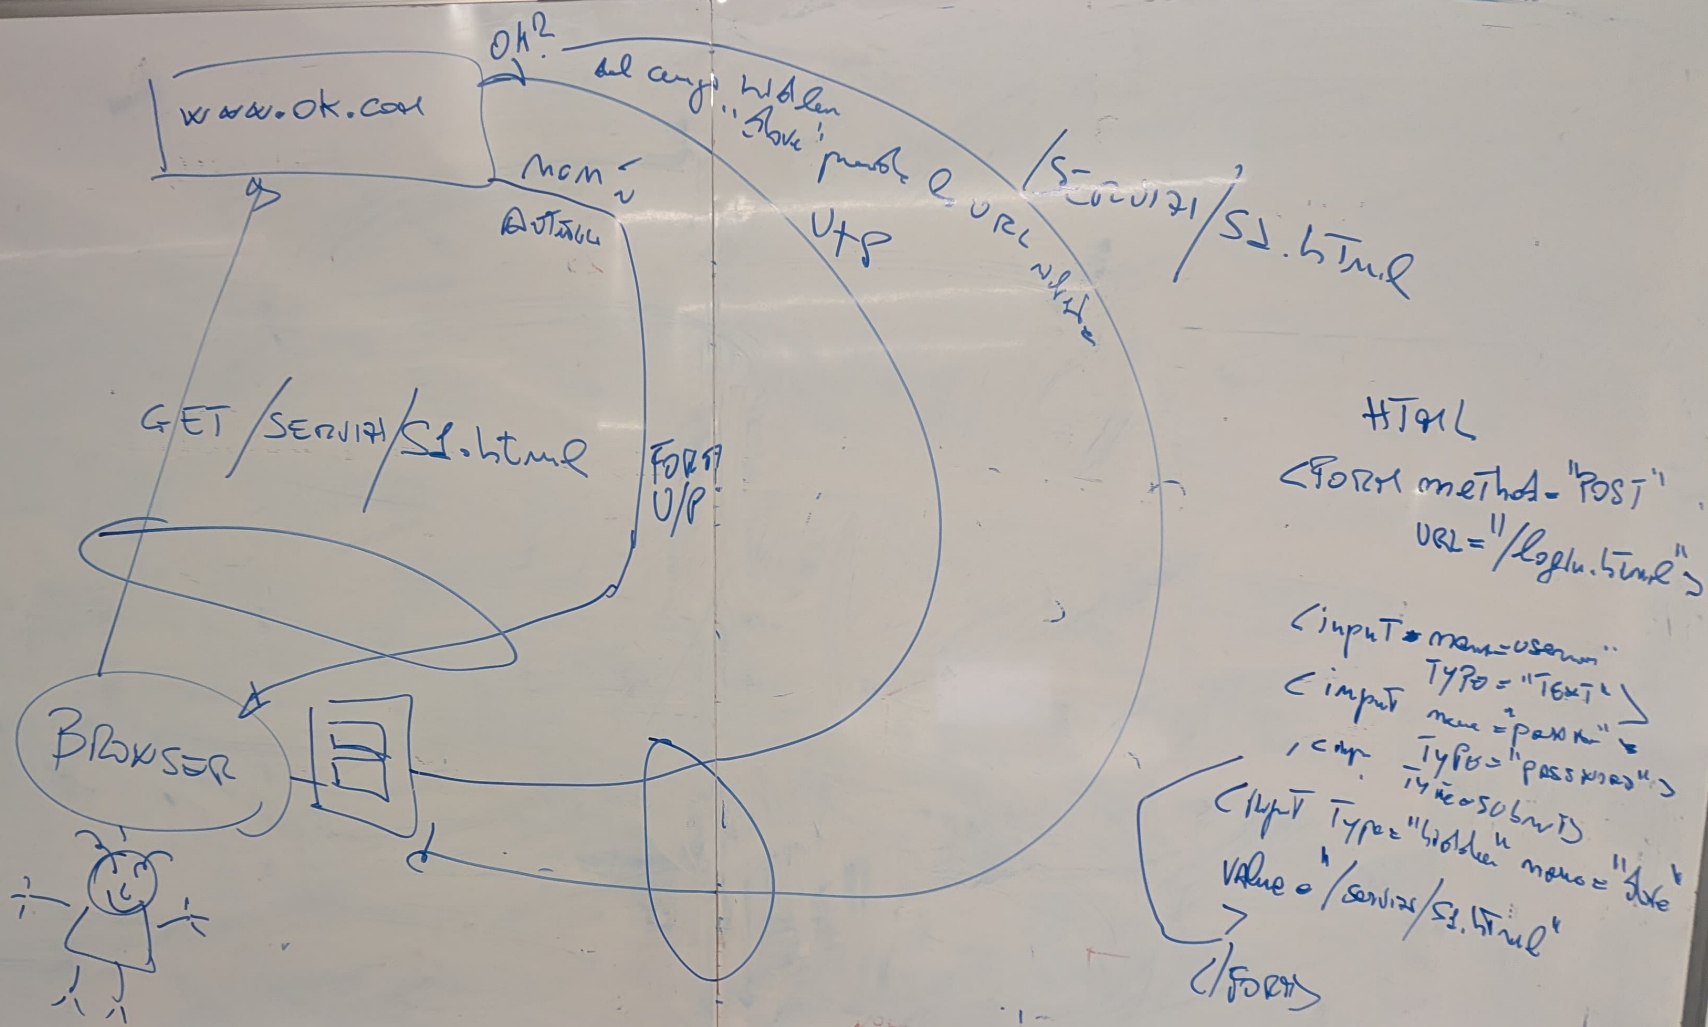 OK?
www.ok.com
dal campo hidden
"dove" prende l'URL
NON È
U+P
/SERVIZI/S1.html
GET /SERVIZI/S1.html
FORM
U/P
BROWSER
HTML
<FORM method="POST"
URL="/login.html">
<input name=usern"
TYPE="TEXT">
<input name="passw"
TYPE="password">
TYPE=SUBMIT>
<input Type="hidden" name="dove"
VALUE="/servizi/S1.html"
>
</FORM>